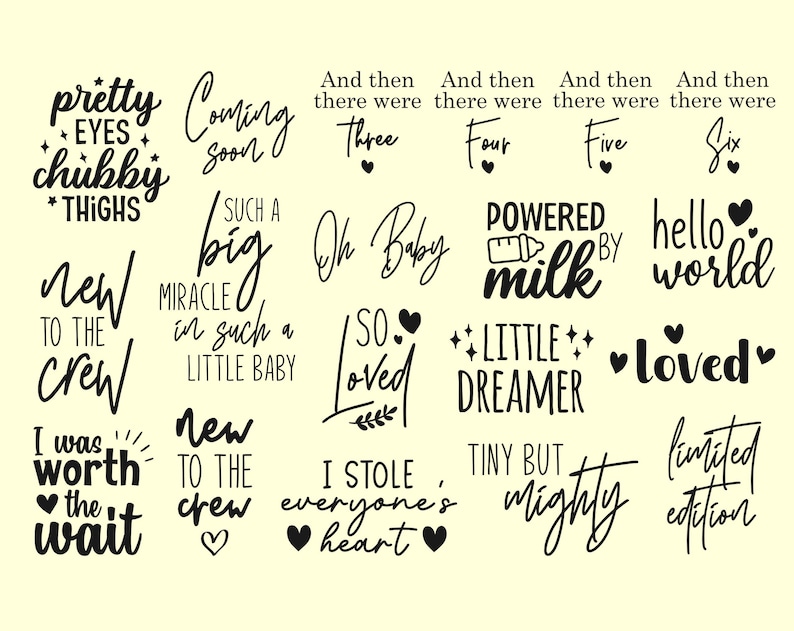 pretty
EYES
chubby
THiGHS
Coming
soon
And then
there were
Three
And then
there were
Four
And then
there were
Five
And then
there were
Six
SUCH A
big
MIRACLE
in such a
LITTLE BABY
Oh Baby
POWERED
BY
milk
hello
world
new
TO THE
crew
SO
Loved
LITTLE
DREAMER
loved
I was
worth
the
wait
new
TO THE
crew
I STOLE
everyone's
heart
TINY BUT
mighty
limited
edition